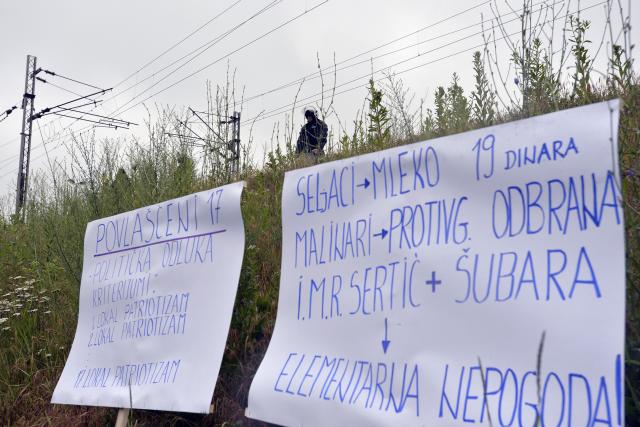 POVLAŠĆENI 17
- POLITIČKA ODLUKA
KRITERIJUMI:
1. LOKAL PATRIOTIZAM
2. LOKAL PATRIOTIZAM
17 LOKAL PATRIOTIZAM
SELJACI → MLEKO 19 DINARA
MALINARI → PROTIVG. ODBRANA
I.M.R. SERTIĆ + ŠUBARA
↓
ELEMENTARNA NEPOGODA!